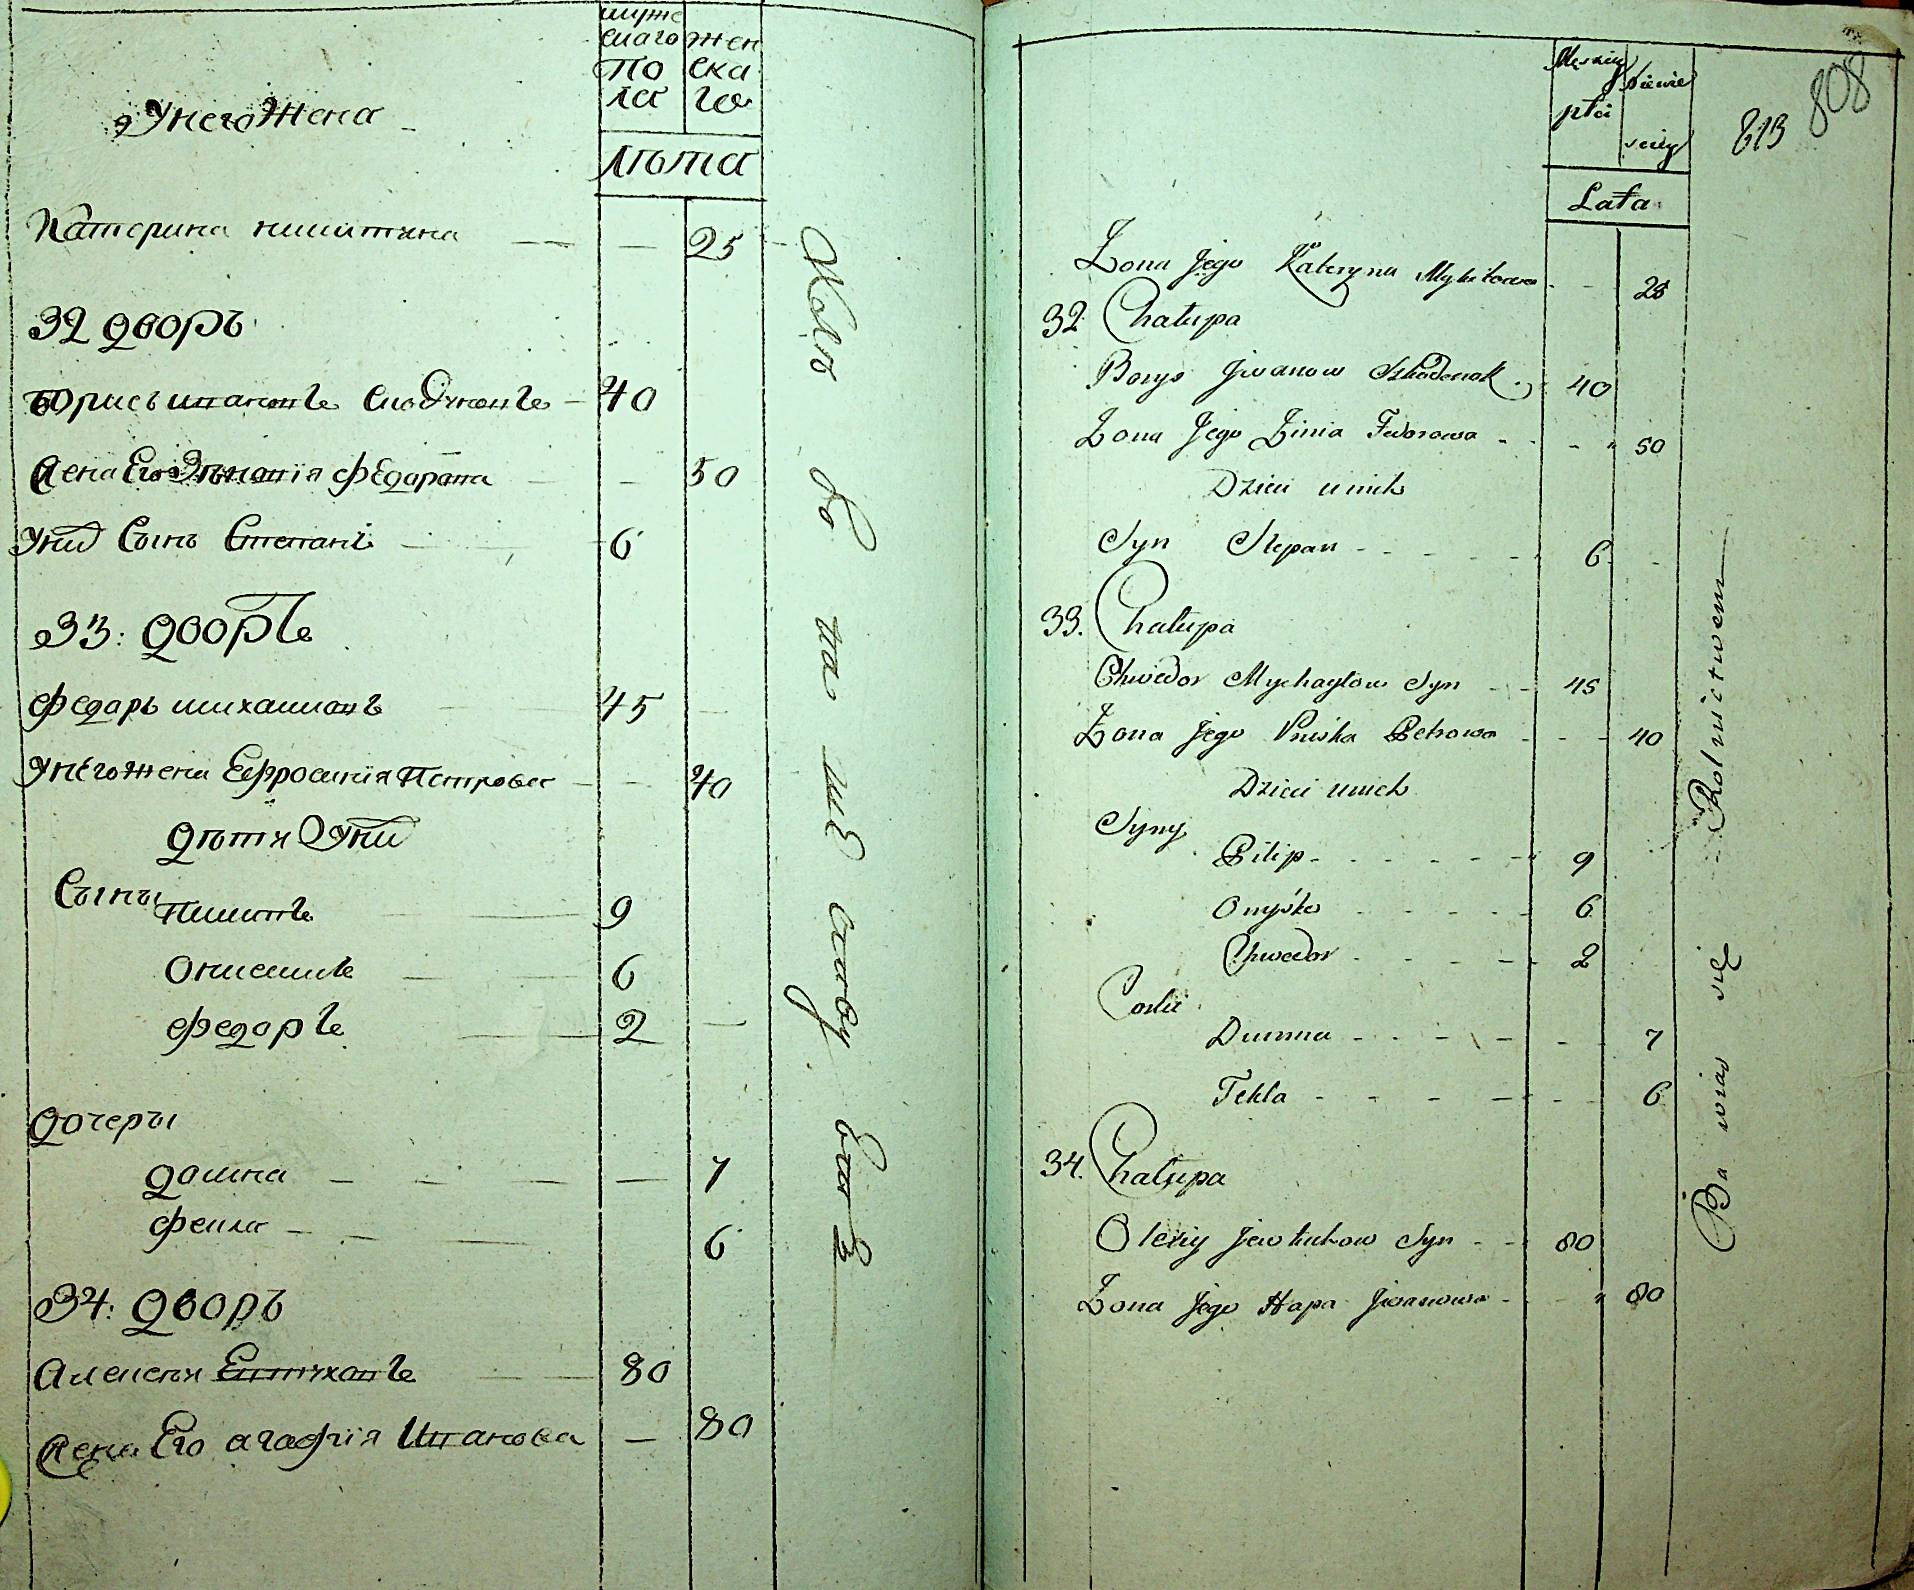 муже
скаго жен
по ска
ла го
лѣта
У него жена
Катерина никитина — — 25
32 дворъ
Борисъ ивановъ — 40
жена Его Зѣновія федорова — — 50
У них Сынъ Степанъ — 6
33: дворъ
федаръ михаиловъ 45 —
У него жена Ефросинія Петрова — — 40
дѣти У них
Сыны
пилипъ — 9
онисимъ — 6
федаръ — 2 —
дочеры
домна — — — — 7
фекла — — — 6
34: дворъ
Алексѣй Евтуховъ — 80
жена Его агафія Иванова — 80
808
813
Męskiey Niewie
płci
sciey
Lata
Żona Jego Kateryna Mykitowa - - 25
32. Chałupa
Borys Jwanow - 40
Żona Jego Zinia Fedorowa - - - 50
Dzieci u nich
Syn Stepan - - - - - 6 -
33. Chałupa
Chwedor Mychayłow Syn - - 45
Żona Jego Pryśka Petrowa - - - 40
Dzieci u nich
Syny
Pilip - - - - - 9
Onyśko - - - - - 6
Chwedor - - - - - 2
Corki
Dumna - - - - - - 7
Tekla - - - - - - 6
34. Chałupa
Olexiy Jewtuchow Syn - - 80
Żona Jego Hapa Jwanowa - - 80
Ba wią się Rolnictwem